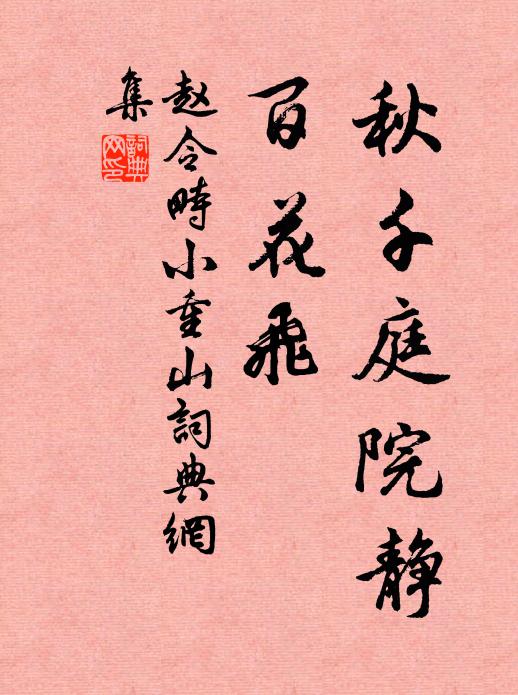 秋千庭院静
百花飛
赵令畤小重山詞典網
集
詞典
网印